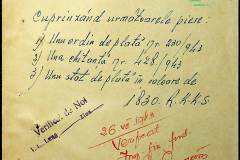 Cuprinzând următoarele piese:
1) Un ordin de plată Nr. 280/943
2) Una chitanță Nr. 428/943
3) Un stat de plată în valoare de
1830. R.K.K.S.
Verificat de Noi
26 VII 1943
Verificat